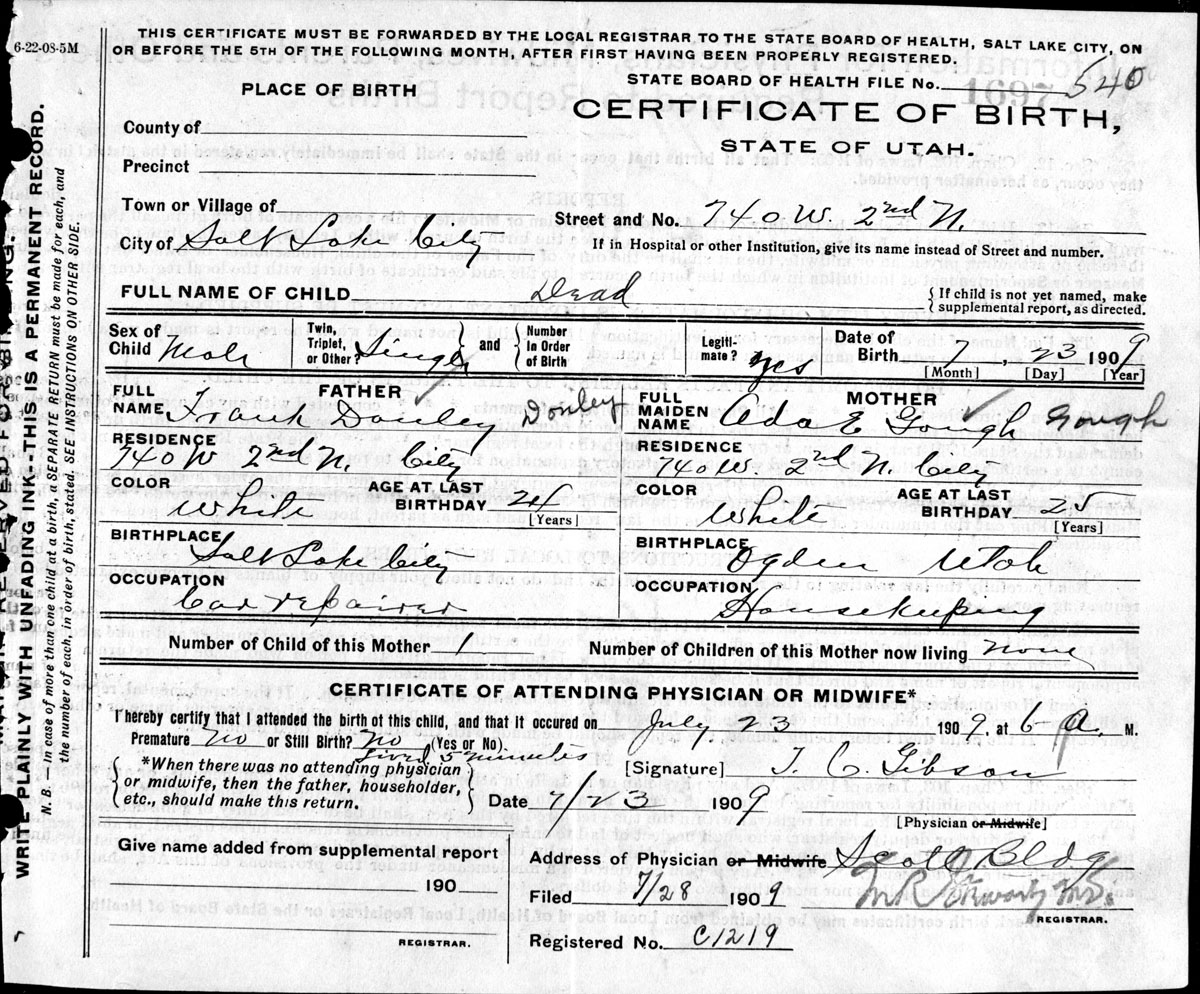 6-22-08-5M
THIS CERTIFICATE MUST BE FORWARDED BY THE LOCAL REGISTRAR TO THE STATE BOARD OF HEALTH, SALT LAKE CITY, ON
OR BEFORE THE 5TH OF THE FOLLOWING MONTH, AFTER FIRST HAVING BEEN PROPERLY REGISTERED.
STATE BOARD OF HEALTH FILE No. 1697 540
PLACE OF BIRTH
CERTIFICATE OF BIRTH,
STATE OF UTAH.
County of
Precinct
Town or Village of
Street and No. 740 W. 2nd N.
City of Salt Lake City
If in Hospital or other Institution, give its name instead of Street and number.
FULL NAME OF CHILD Dead
{ If child is not yet named, make
supplemental report, as directed.
Sex of Child Male
Twin, Triplet, or Other? Single
and { Number in Order of Birth
Legiti-mate? yes
Date of Birth 7, 23 1909
[Month] [Day] [Year]
FULL NAME FATHER Frank Donley Donley
FULL MAIDEN NAME MOTHER Ada E Gough Gough
RESIDENCE
740 W 2nd N. City
RESIDENCE
740 W. 2nd N. City
COLOR White
AGE AT LAST BIRTHDAY 24
[Years]
COLOR White
AGE AT LAST BIRTHDAY 25
[Years]
BIRTHPLACE
Salt Lake City
BIRTHPLACE
Ogden Utah
OCCUPATION
Car repairer
OCCUPATION
Housekeeping
Number of Child of this Mother 1
Number of Children of this Mother now living none
CERTIFICATE OF ATTENDING PHYSICIAN OR MIDWIFE*
I hereby certify that I attended the birth of this child, and that it occured on July, 23 1909, at 6 a. M.
Premature no or Still Birth? no (Yes or No).
Lived 5 minutes
{ *When there was no attending physician
or midwife, then the father, householder,
etc., should make this return. }
[Signature] T. C. Gibson
Date 7/23 1909
[Physician or Midwife]
Give name added from supplemental report
190
REGISTRAR.
Address of Physician or Midwife Scott Bldg
Filed 7/28 1909
REGISTRAR.
Registered No. C1219
WRITE PLAINLY WITH UNFADING INK—THIS IS A PERMANENT RECORD.
N. B. — In case of more than one child at a birth, a SEPARATE RETURN must be made for each, and
the number of each, in order of birth, stated. SEE INSTRUCTIONS ON OTHER SIDE.